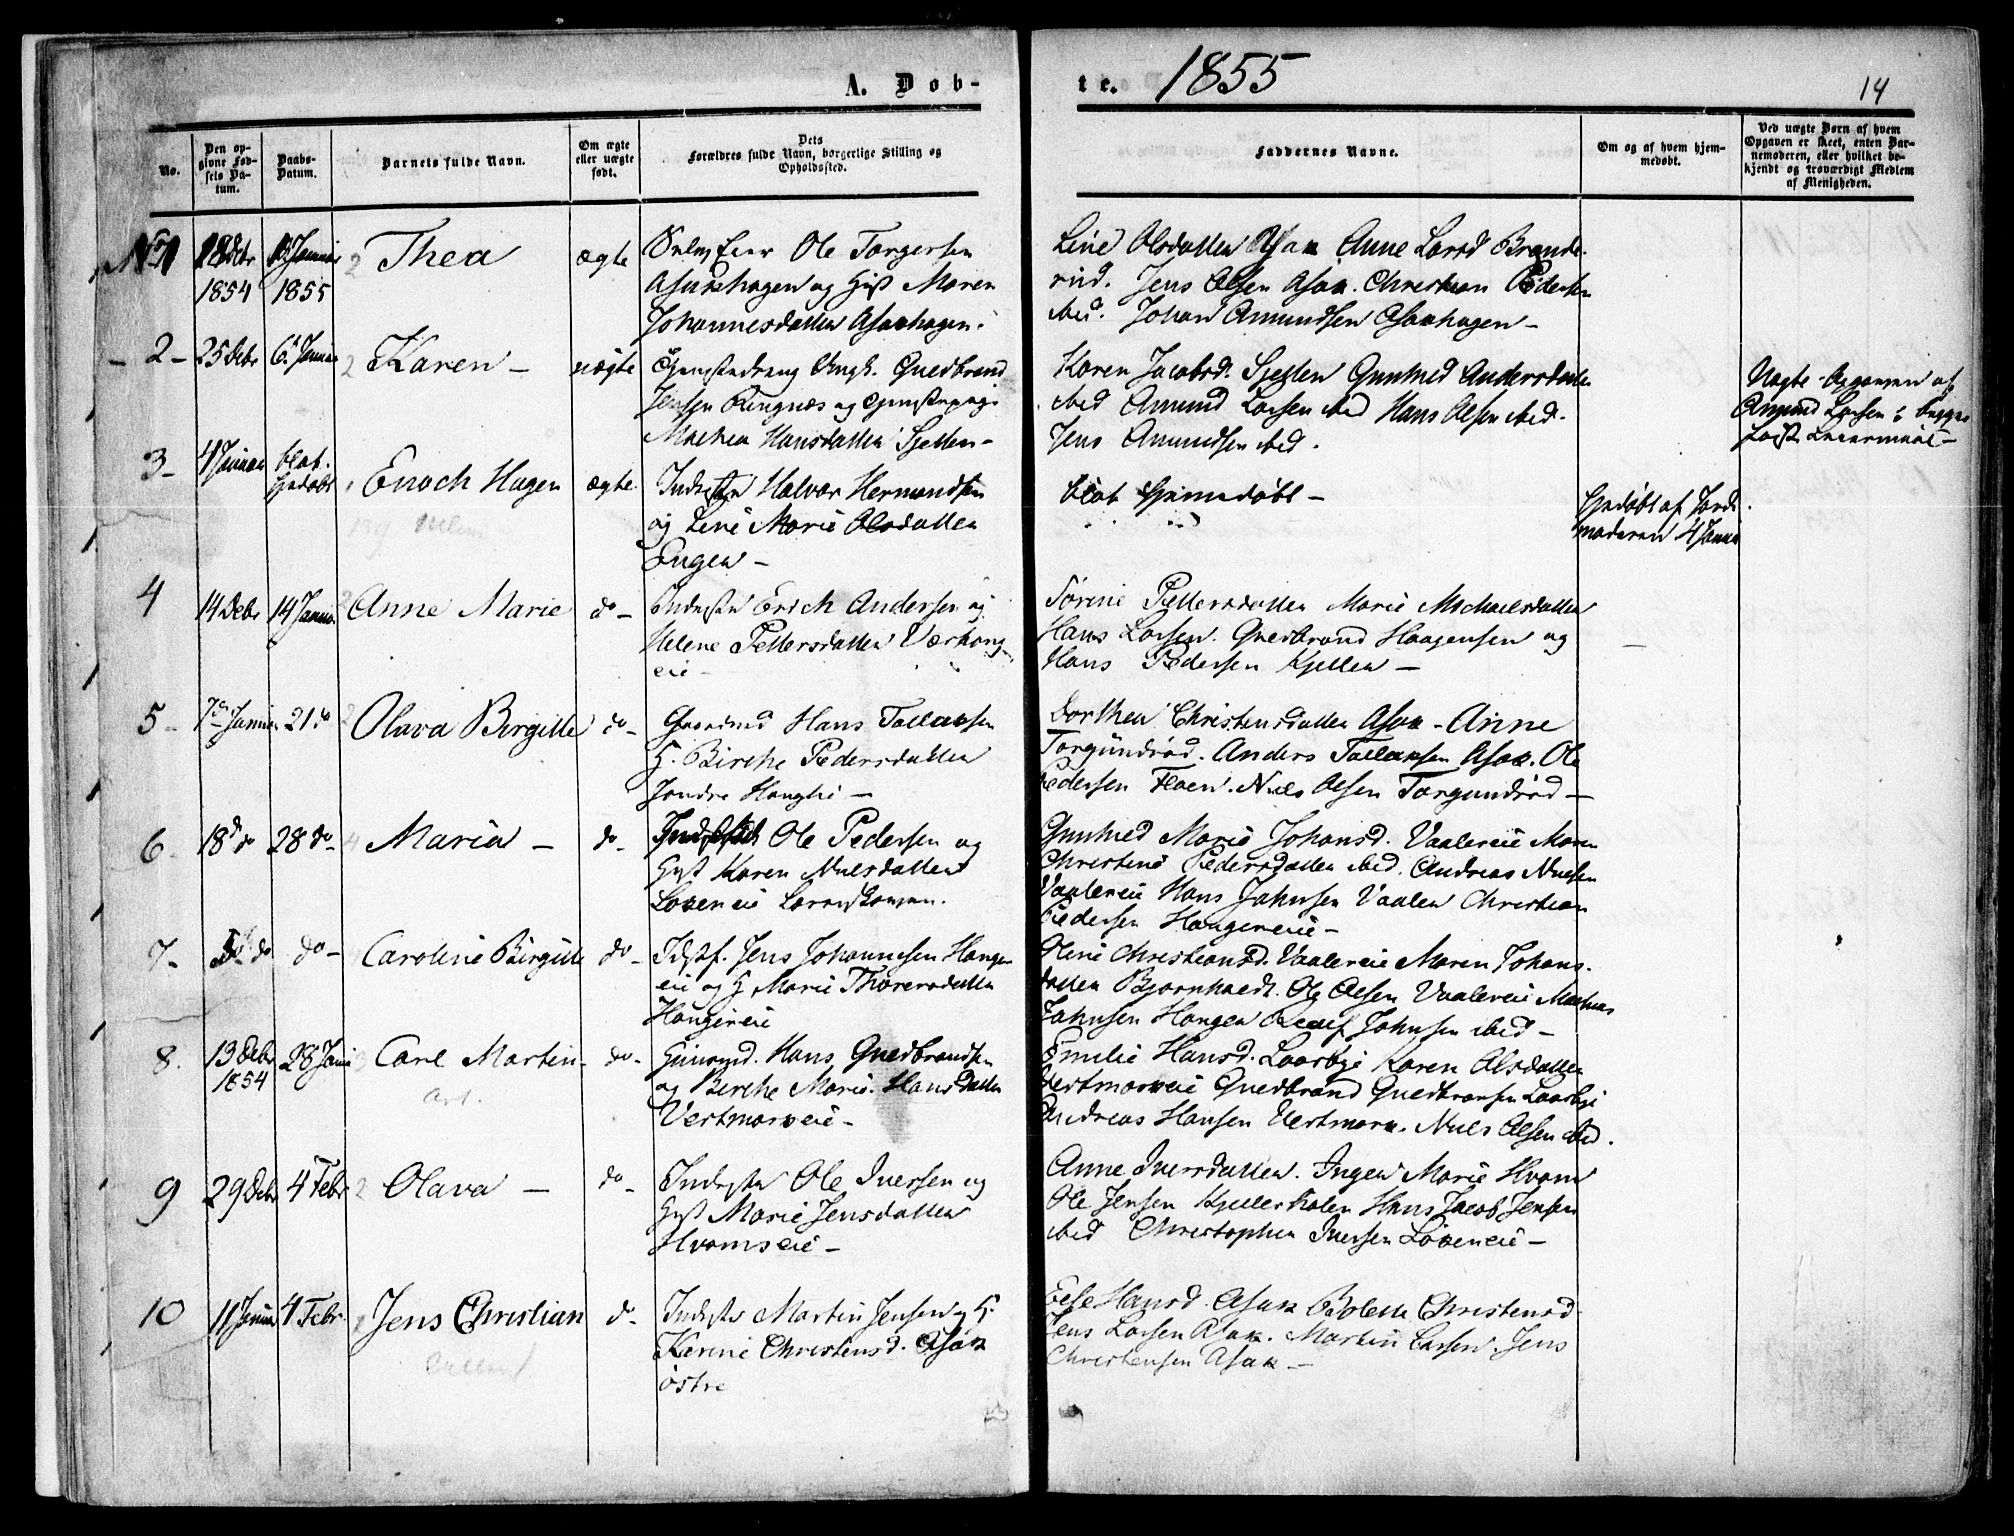 A. Døb-
te. 1855
14
No.
Den op-
givne Fød-
sels Da-
tum.
Daabs-
Datum.
Barnets fulde Navn.
Om ægte
eller uægte
født.
Dets
Forældres fulde Navn, borgerlige Stilling og
Opholdssted.
Faddernes Navne.
Om og af hvem hjem-
medøbt.
Ved uægte Børn af hvem
Opgaven er skeet, enten Bar-
nemoderen, eller hvilket be-
kjendt og troværdigt Medlem
af Menigheden.
No 1
18 Debr
1854
Januar
1855
2 Thea
ægte
Ole Torgersen
Asakshagen og Hust Maren
Johannesdatter Asakhagen.
Line Olsdatter Asak Anne Larsd Brande-
rud. Jens Olsen Asak. Christian Pedersen
ibid. Johan Amundsen Asakhagen -
- 2 -
25 Debr
6 Januar
2 Karen -
uægte
Ungk. Guldbrand
Jensen Ringnæs og
Mathea Hansdatter Sjetten -
Karen Jacobsd. Sjetten Gunhild Andersdatter
ibid Amund Larsen ibid Hans Olsen ibid.
Jens Amundsen ibid.
Uægte - Opgaven af
Amund Larsen
3 -
4 Januar
Enoch Hagen
ægte
Halvor Hermandsen
og Line Marie Olsdatter
Engen -
blot Hjemmedøbt -
Hjdøbt af Jord-
moderen 4 Januar
4
14 Debr
14 Januar
Anne Marie
do -
Indster Erich Andersen og
Helene Pettersdatter Værhoug-
eie -
Sørine Pettersdatter Marie Michaelsdatter
Hans Larsen. Guldbrand Haagensen og
Hans Pedersen Kjellen -
5 -
7de Januar
21 do
2 Olava Birgitte
do -
Gaardmd Hans Tollevsen
H. Birthe Pedersdatter
Jondre Hougli -
Dorthea Christensdatter Asak - Anne
Torgundrød. Anders Tollevsen Asak. Ole
Pedersen Floen. Niels Olsen Torgundrød -
6 -
18 do
28 do -
Maria -
do -
Ole Pedersen og
Hust Karen Nielsdatter
Løkeneie
Gunhild Marie Johansd. Vaalereie Maren
Christine Pedersdatter ibid. Andreas Nielsen
Vaalereie Hans Johnsen Vaaler Christian
Pedersen Haugereie -
7 -
do
do -
Caroline Birgitte
do -
Idstf. Jens Johannesen Hauger
eie og H. Marie Thorersdatter
Haugereie
Oline Christiansd. Vaalereie Maren Johans-
datter Bjørnholdt. Ole Olsen Vaalereie Mathias
Johnsen Haugen Johnsen ibid -
8.
13 Debr
1854
28 Janu
Carl Martin -
do -
Huusmd. Hans Guldbrandsen
og Birthe Marie Hansdatter
Vestmorkeie -
Emilie Hansd. Laasbye Karen Olsdatter
Vestmorkeie Guldbrand Guldbransen Laasbye
Andreas Hansen Vestmork. Niels Olsen ibid.
9
29 Debr
4 Febr
2 Olava -
do -
Indster Ole Iversen og
Hust Marie Jensdatter
Hvamseie -
Anne Iversdatter. Ingen Marie Hvam
Ole Jensen Kjellerholen Hans Jacob Jensen
ibid Christopher Iversen Løkeneie -
10
11 Januar
4 Febr
Jens Christian
do -
Indster Martin Jensen og H.
Karine Christensd. Asak
østre
Else Hansd. Asak Bolette Christensd
Jens Larsen Asak. Martin Larsen. Jens
Christensen Asak -